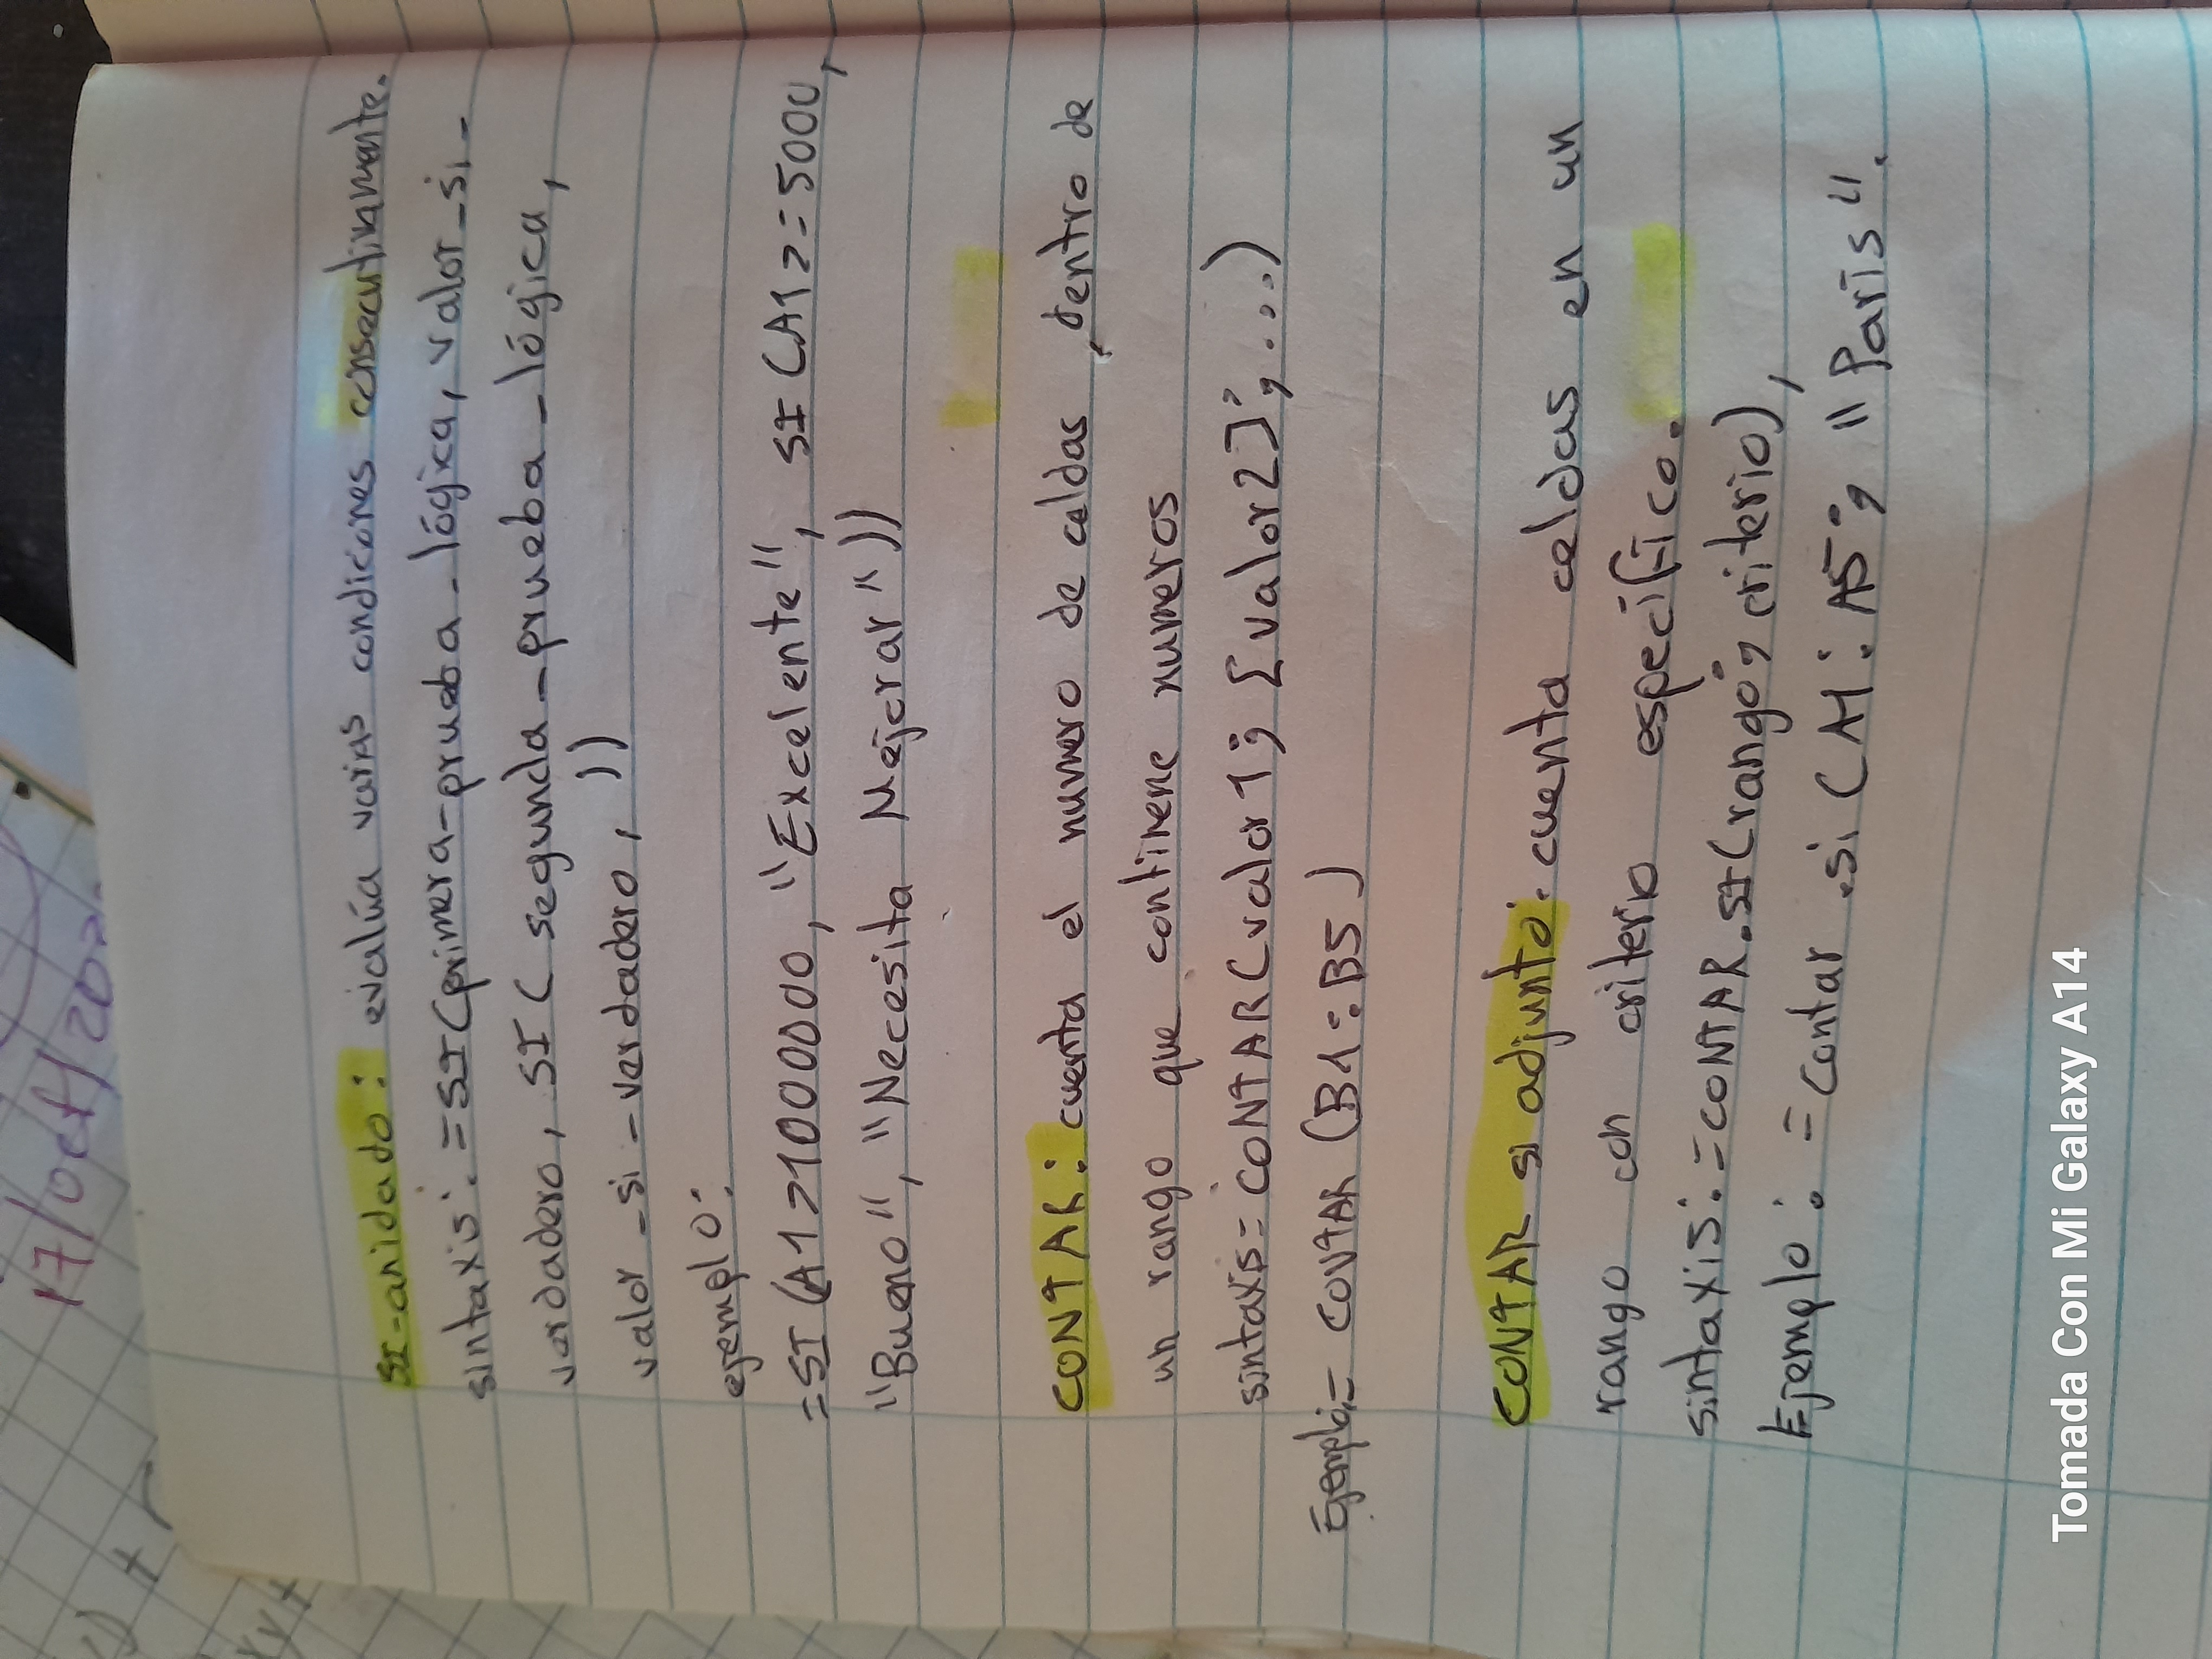 SI-anidado: evalúa varias condiciones consecutivamente.
sintaxis: =SI(primera-prueba-lógica, valor-si-
verdadero, SI(segunda-prueba-lógica,
valor-si-verdadero, ))
ejemplo:
=SI(A1>100000, "Excelente", SI(A1>=5000,
"Bueno", "Necesita Mejorar"))
CONTAR: cuenta el numero de celdas, dentro de
un rango que contiene numeros
sintaxis= CONTAR(valor1; [valor2]; ...)
Ejemplo= CONTAR (B1:B5)
CONTAR si adjunto: cuenta celdas en un
rango con criterio específico.
sintaxis: =CONTAR.SI(rango; criterio),
Ejemplo: =contar.si(A1:A5; "Paris".
17/oct/202
Tomada Con Mi Galaxy A14